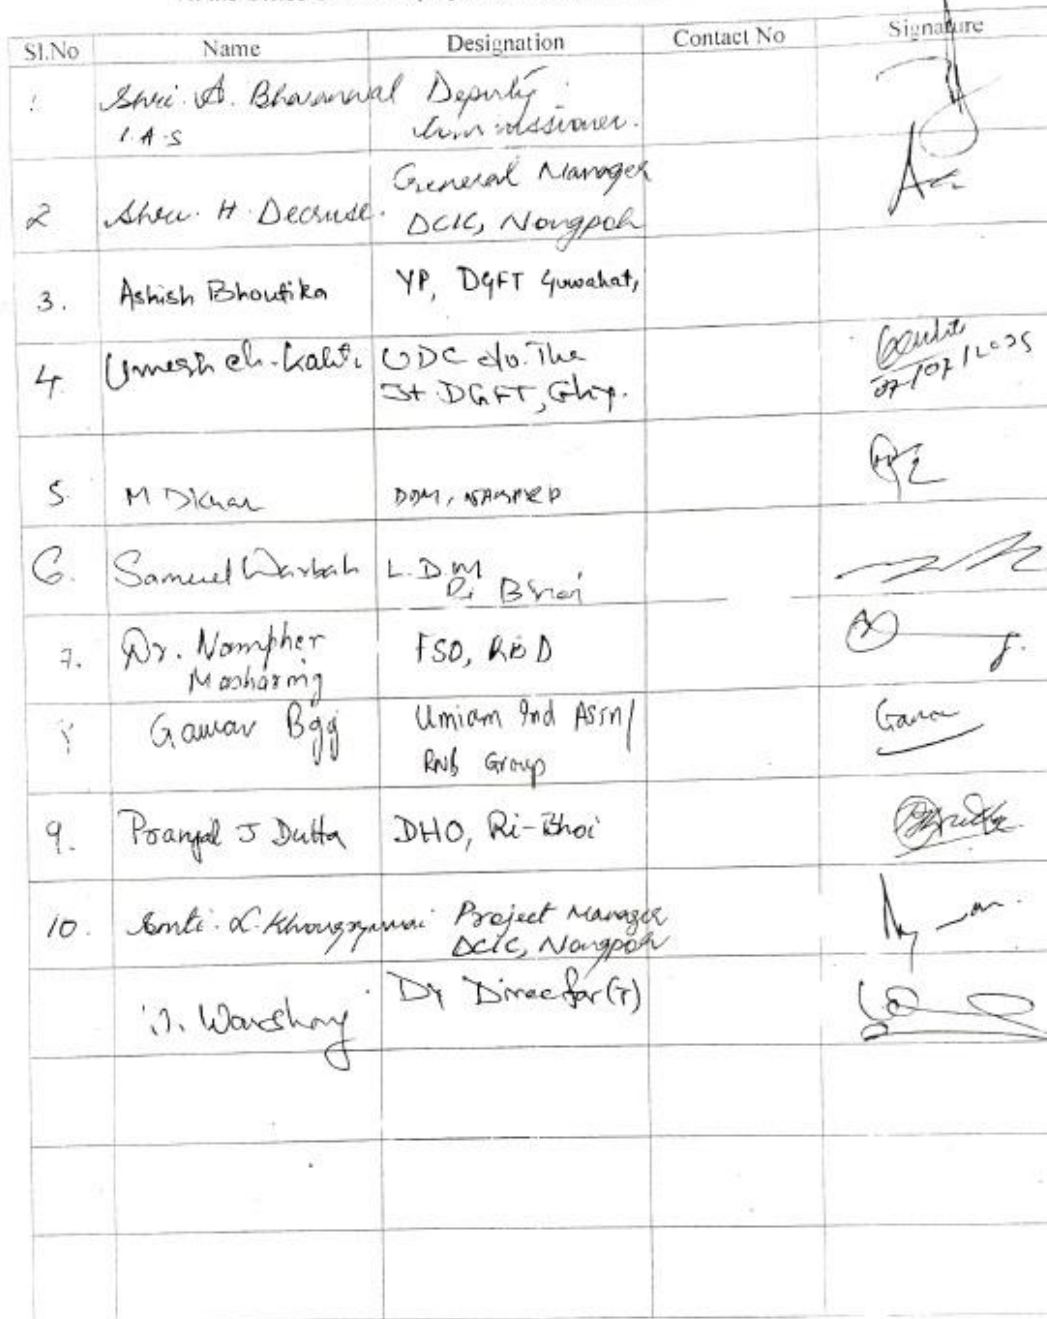 Sl.No Name Designation Contact No Signature
1 Shri. A. Bharanwal Deputy
I.A.S Commissioner.
General Manager
2 Shri. H. Decruse. DCIC, Nongpoh
3. Ashish Bhoutika YP, DGFT Guwahati,
4. Umesh ch. Kalita UDC o/o. The
Jt. DGFT, Ghy.
07/07/2025
5. M Dkhar DDM, NABARD
6. Samuel Warbah L.D.M
Ri Bhoi
7. Dr. Nampher FSO, RBD
Masharing
8 Gaurav Umiam Ind Assn/
RNB Group
9. Pranjal J Dutta DHO, Ri-Bhoi
10. Smti. L. Project Manager
DCIC, Nongpoh
Dy Director(T)